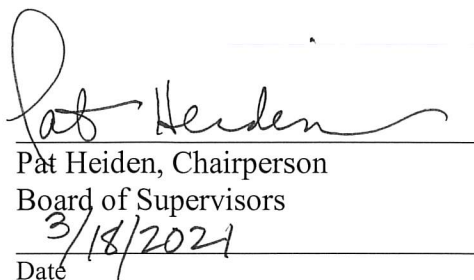 Pat Heiden
Pat Heiden, Chairperson
Board of Supervisors
3/18/2021
Date